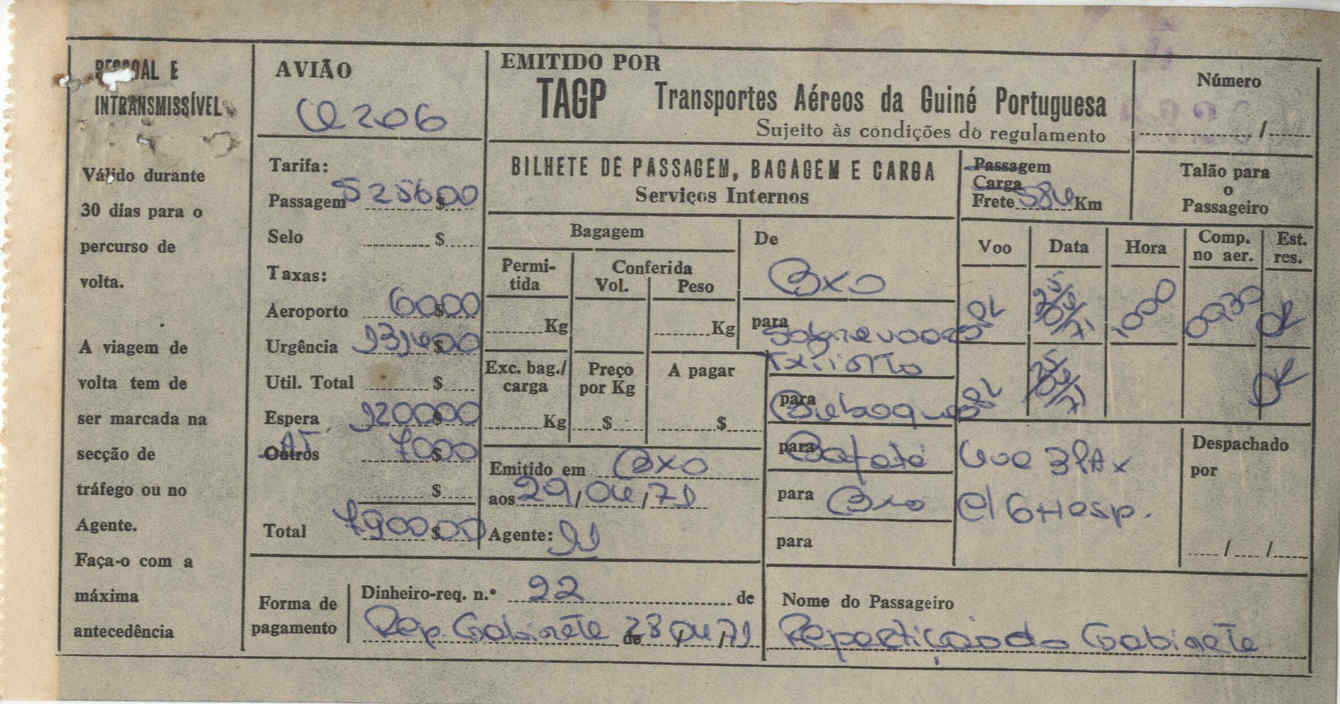 PESSOAL E
INTRANSMISSÍVEL
Válido durante
30 dias para o
percurso de
volta.
A viagem de
volta tem de
ser marcada na
secção de
tráfego ou no
Agente.
Faça-o com a
máxima
antecedência
AVIÃO
Tarifa:
Passagem $
Selo $
Taxas:
Aeroporto 60$00
Urgência $
Util. Total $
Espera $
Outros 70$00
$
Total 7900$00
EMITIDO POR
TAGP Transportes Aéreos da Guiné Portuguesa
Sujeito às condições do regulamento
Número
/
BILHETE DE PASSAGEM, BAGAGEM E CARGA
Serviços Internos
Passagem
Carga
Frete Km
Talão para
o
Passageiro
Bagagem
Permitida
Conferida
Vol. Peso
Kg Kg
Exc. bag./
carga
Preço
por Kg
A pagar
Kg $ $
Emitido em BXO
aos 29/04/71
Agente:
De
BXO
para
para
para Bafatá
para
para
Voo Data Hora Comp.
no aer. Est.
res.
1000 0930 OK
OK
Despachado
por
/ /
Forma de
pagamento
Dinheiro-req. n.º 22 de
Rep. Gabinete de 28/04/71
Nome do Passageiro
Repartição do Gabinete